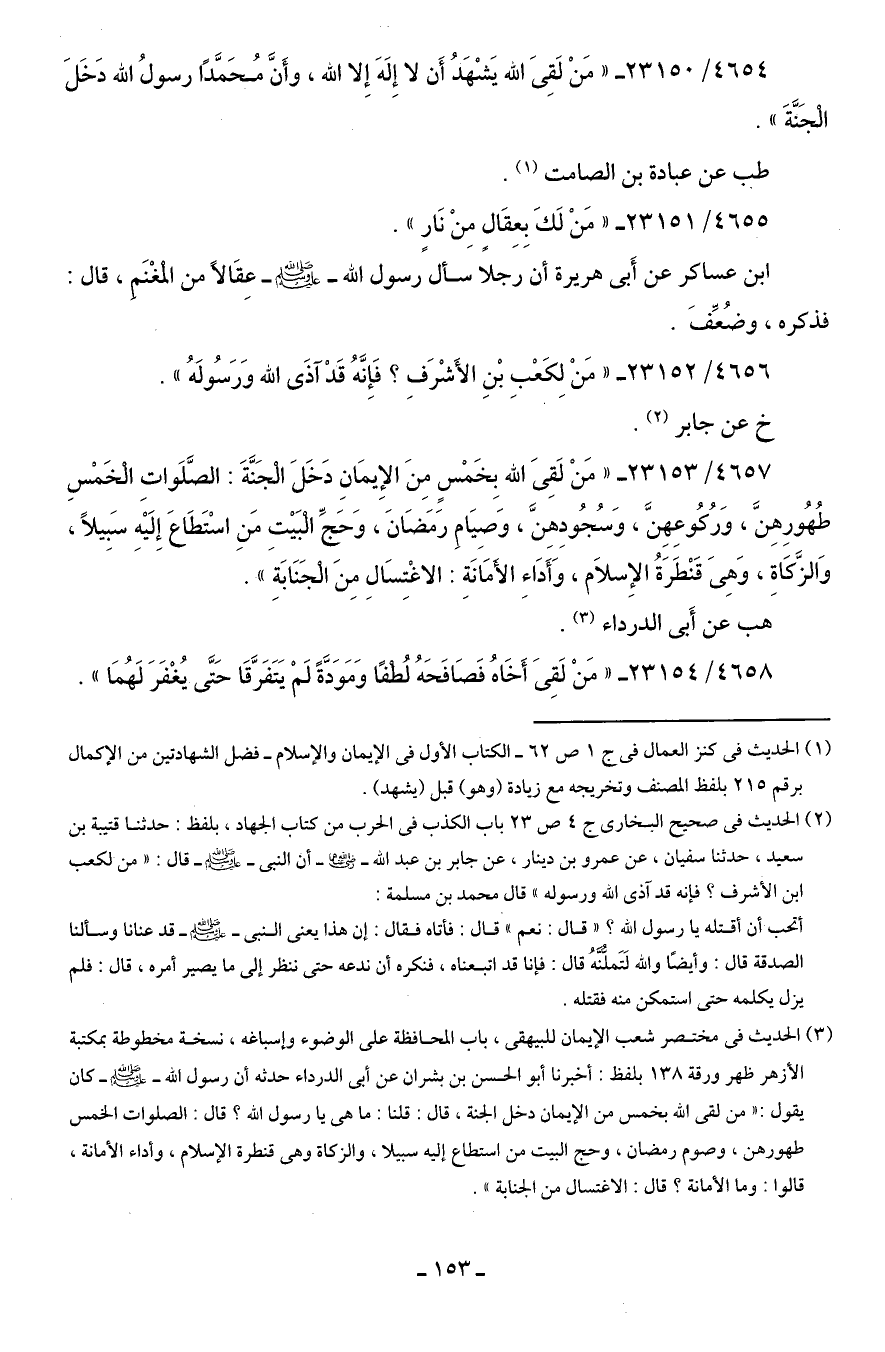 ٤٦٥٤/ ٢٣١٥٠ـ « مَنْ لَقِىَ الله يَشْهَدُ أَن لا إِلَهَ إِلا الله ، وأَنَّ مُحَمَّدًا رسولُ الله دَخَلَ
الْجَنَّةَ » .
طب عن عبادة بن الصامت (١) .
٤٦٥٥/ ٢٣١٥١ـ « مَنْ لَكَ بِعِقَالٍ مِنْ نَارٍ » .
ابن عساكر عن أَبى هريرة أن رجلا سأل رسول الله ـ ﷺ ـ عِقَالاً من المْغْنَمِ ، قال :
فذكره ، وضُعِّفَ .
٤٦٥٦/ ٢٣١٥٢ـ « مَنْ لِكَعْبِ بْنِ الأَشْرَفِ ؟ فَإِنَّهُ قَدْ آذَى الله وَرَسُولَهُ » .
خ عن جابر (٢) .
٤٦٥٧/ ٢٣١٥٣ـ « مَنْ لَقِىَ الله بِخَمْسٍ مِنَ الإِيمَانِ دَخَلَ الْجَنَّةَ : الصَّلَواتِ الْخَمْسِ
طُهُورِهِنَّ ، وَرُكُوعِهِنَّ ، وَسُجُودِهِنَّ ، وَصِيَامِ رَمَضَانَ ، وَحَجِّ الْبَيْتِ مَنِ اسْتَطَاعَ إِلَيْهِ سَبِيلاً ،
وَالزَّكَاةِ ، وَهِىَ قَنْطَرَةُ الإِسلاَمِ ، وَأَدَاءِ الأَمَانَةِ : الاغْتِسَالِ مِنَ الْجَنَابَةِ » .
هب عن أَبى الدرداء (٣) .
٤٦٥٨/ ٢٣١٥٤ـ « مَنْ لَقِىَ أَخَاهُ فَصَافَحَهُ لُطْفًا وَمَوَدَّةً لَمْ يَتَفَرَّقَا حَتَّى يُغْفَرَ لَهُمَا » .
(١) الحديث فى كنز العمال فى ج ١ ص ٦٢ ـ الكتاب الأول فى الإيمان والإسلام ـ فضل الشهادتين من الإكمال
برقم ٢١٥ بلفظ المصنف وتخريجه مع زيادة (وهو) قبل (يشهد) .
(٢) الحديث فى صحيح البخارى ج ٤ ص ٢٣ باب الكذب فى الحرب من كتاب الجهاد ، بلفظ : حدثنا قتيبة بن
سعيد ، حدثنا سفيان ، عن عمرو بن دينار ، عن جابر بن عبد الله ـ رضي الله عنهما ـ أن النبى ـ ﷺ ـ قال : « من لكعب
ابن الأشرف ؟ فإنه قد آذى الله ورسوله » قال محمد بن مسلمة :
أتحب أن أقتله يا رسول الله ؟ « قال : نعم » قال : فأتاه فقال : إن هذا يعنى النبى ـ ﷺ ـ قد عنانا وسألنا
الصدقة قال : وأيضًا والله لَتَملُّنَّهُ قال : فإنا قد اتبعناه ، فنكره أن ندعه حتى ننظر إلى ما يصير أمره ، قال : فلم
يزل يكلمه حتى استمكن منه فقتله .
(٣) الحديث فى مختصر شعب الإيمان للبيهقى ، باب المحافظة على الوضوء وإسباغه ، نسخة مخطوطة بمكتبة
الأزهر ظهر ورقة ١٣٨ بلفظ : أخبرنا أبو الحسن بن بشران عن أبى الدرداء حدثه أن رسول الله ـ ﷺ ـ كان
يقول :« من لقى الله بخمس من الإيمان دخل الجنة ، قال : قلنا : ما هى يا رسول الله ؟ قال : الصلوات الخمس
طهورهن ، وصوم رمضان ، وحج البيت من استطاع إليه سبيلا ، والزكاة وهى قنطرة الإسلام ، وأداء الأمانة ،
قالوا : وما الأمانة ؟ قال : الاغتسال من الجنابة » .
ـ ١٥٣ ـ